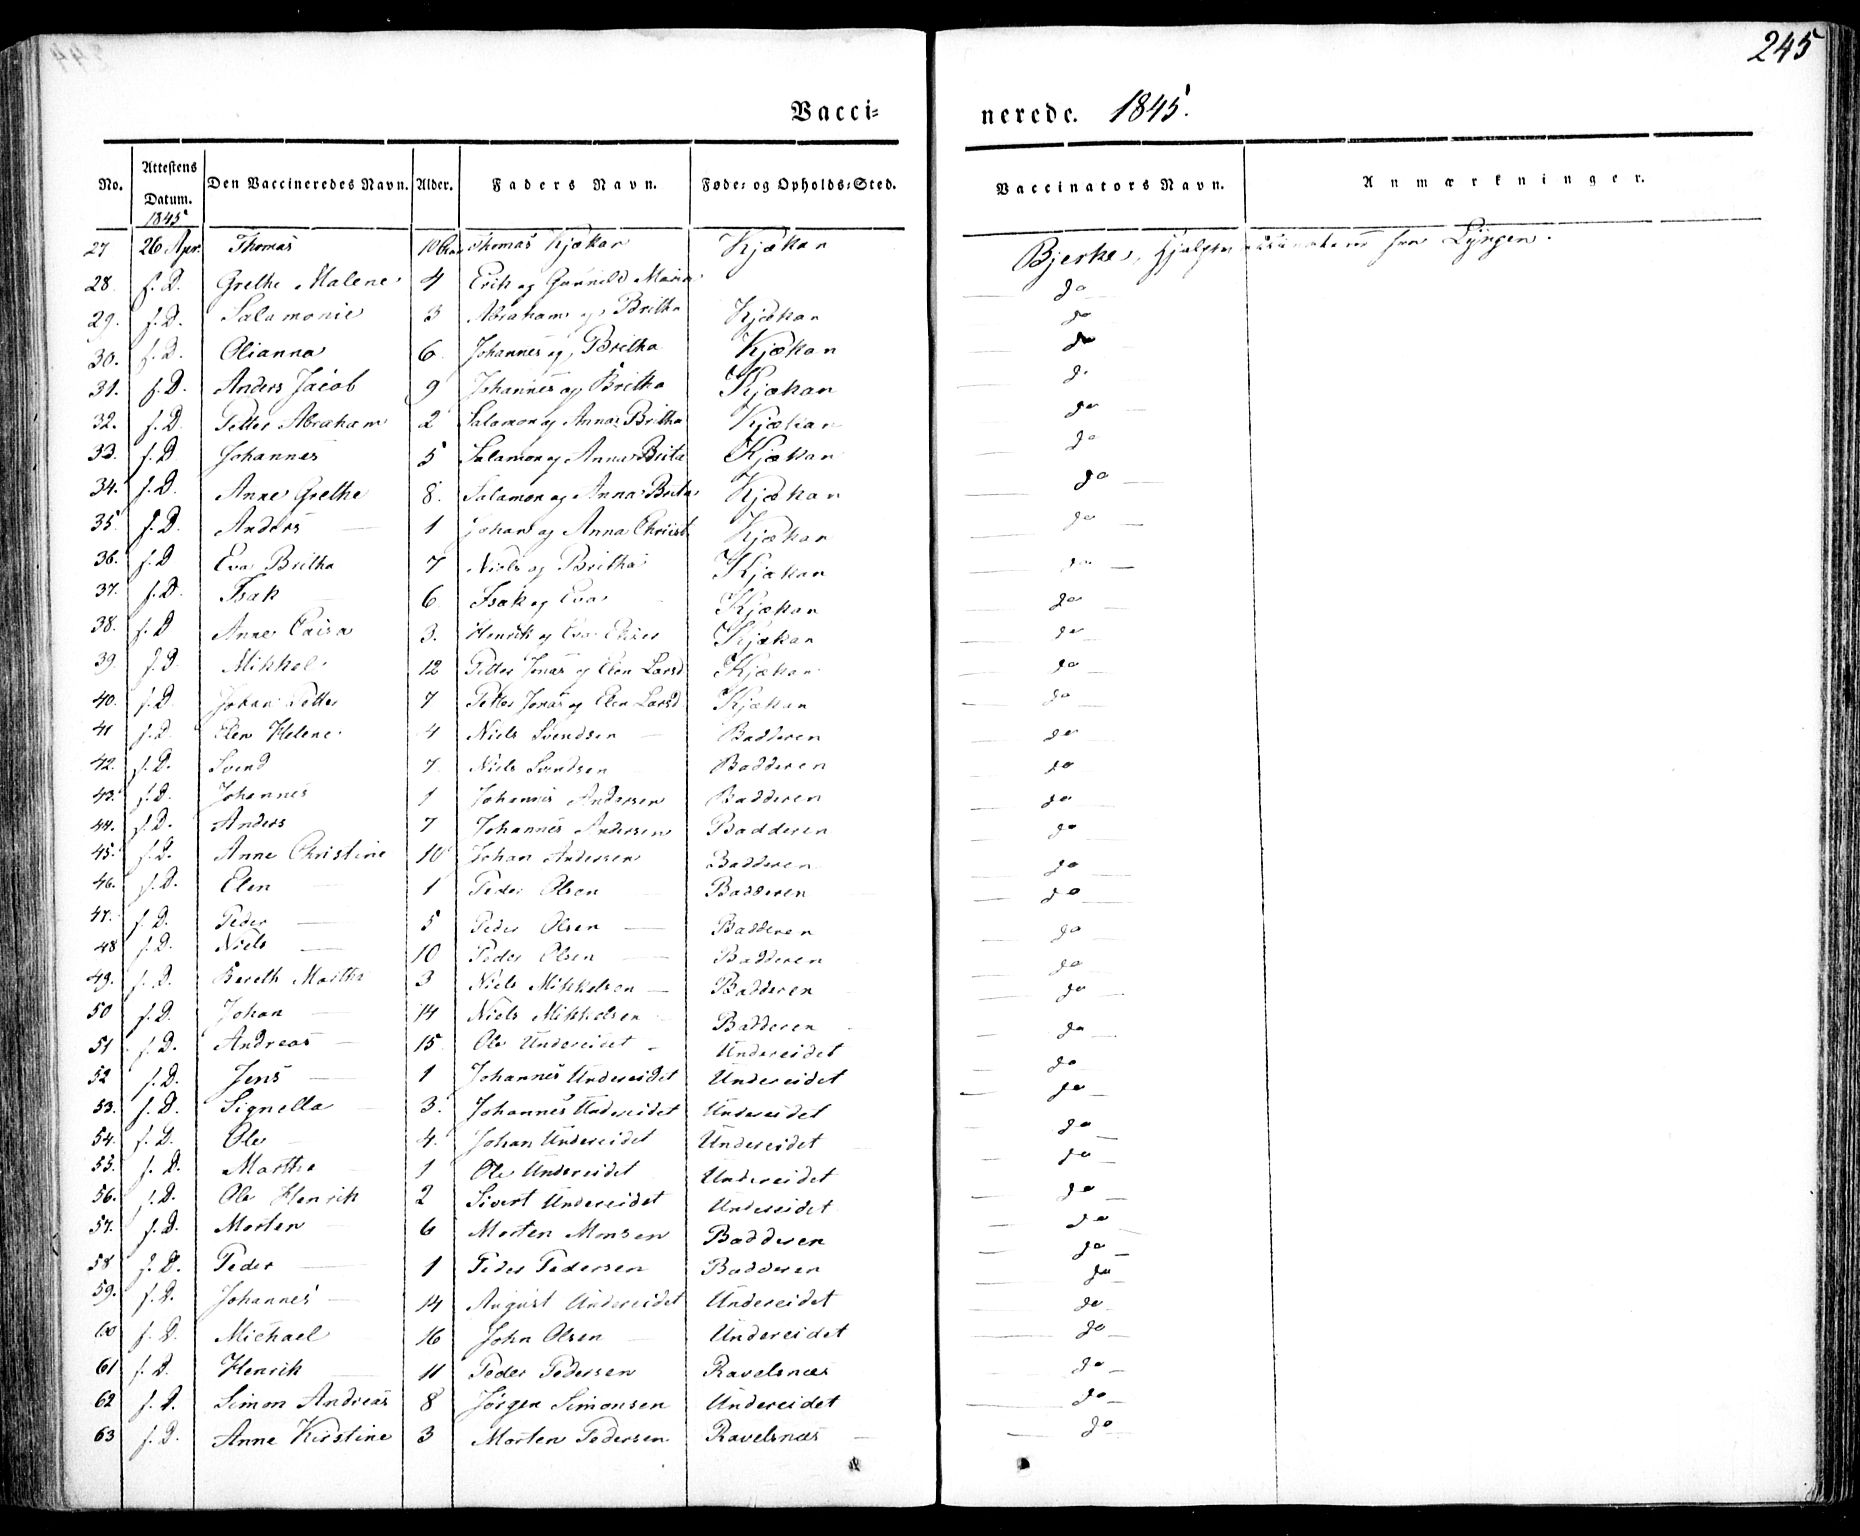 245
Vacci= nerede. 1845.
No. Attestens Datum. Den Vaccineredes Navn. Alder. Faders Navn. Føde= og Opholds=Sted. Vaccinators Navn. Anmærkninger.
1845
27 26 Apr. Thomas 10 Thomas Kjækan Kjækan Bjerke, fra Lyngen.
28. s. D. Grethe Malene 4 Erik og Gunnild Maria do
29. s. D. Salamonie 3 Abraham og Britha Kjækan do
30. s. D. Olianna 6 Johannes og Britha Kjækan do
31. s. D. Anders Jacob 9 Johannes og Britha Kjækan do
32. s. D. Petter Abraham 2 Salamon og Anna Britha Kjækan do
33. s. D Johannes 5 Salamon og Anna Brita Kjækan do
34. s. D. Anne Grethe 8. Salamon og Anna Brita Kjækan do
35. s. D. Anders 1 Johan og Anna Christ Kjækan do
36. s. D Eva Britha 7 Niels og Britha Kjækan do
37. s. D. Isak 6 Isak og Eva Kjækan do
38. s. D Anne Caisa 3. Henrik og Eva Kjækan do
39. s. D. Mikkel 12 Petter Jonas og Elen Larsd Kjækan do
40. s. D. Johan Petter 7 Petter Jonas og Elen Larsd Kjækan do
41 s. D. Elen Helene 4 Niels Svendsen Badderen do
42. s. D. Svend 7. Niels Svendsen Badderen do
43. s. D. Johannes 1 Johannes Andersen Badderen do
44. s. D. Anders 7 Johannes Andersen Badderen do
45. s. D. Anne Christine 10 Johan Andersen Badderen do
46. s. D. Elen 1 Peder Olsen Badderen do
47. s. D. Peder 5 Peder Olsen Badderen do
48 s. D. Niels 10 Peder Olsen Badderen do
49. s. D. Bereth Marthe 3 Niels Mikkelsen Badderen do
50 s. D. Johan 14 Niels Mikkelsen Badderen do
51 s. D. Andreas 15 Ole Undereidet Undereidet do
52 s. D. Jens 1 Johannes Undereidet Undereidet do
53. s. D. Signella 3. Johannes Undereidet Undereidet do
54. s. D. Ole 4. Johan Undereidet Undereidet do
55. s. D. Marthe 1 Ole Undereidet Undereidet do
56. s. D. Ole Henrik 2 Sivert Undereidet Undereidet do
57. s. D. Morten 6 Morten Monsen Badderen do
58 s. D. Peder 1 Peder Pedersen Badderen do
59. s. D. Johannes 14 August Undereidet Undereidet do
60 s. D. Michael 16 John Olsen Undereidet do
61 s. D. Henrik 11 Peder Pedersen Ravelsnæs do
62 s. D. Simon Andreas 8 Jørgen Simonsen Undereidet do
63 s. D. Anne Kirstine 3 Morten Pedersen Ravelsnæs do